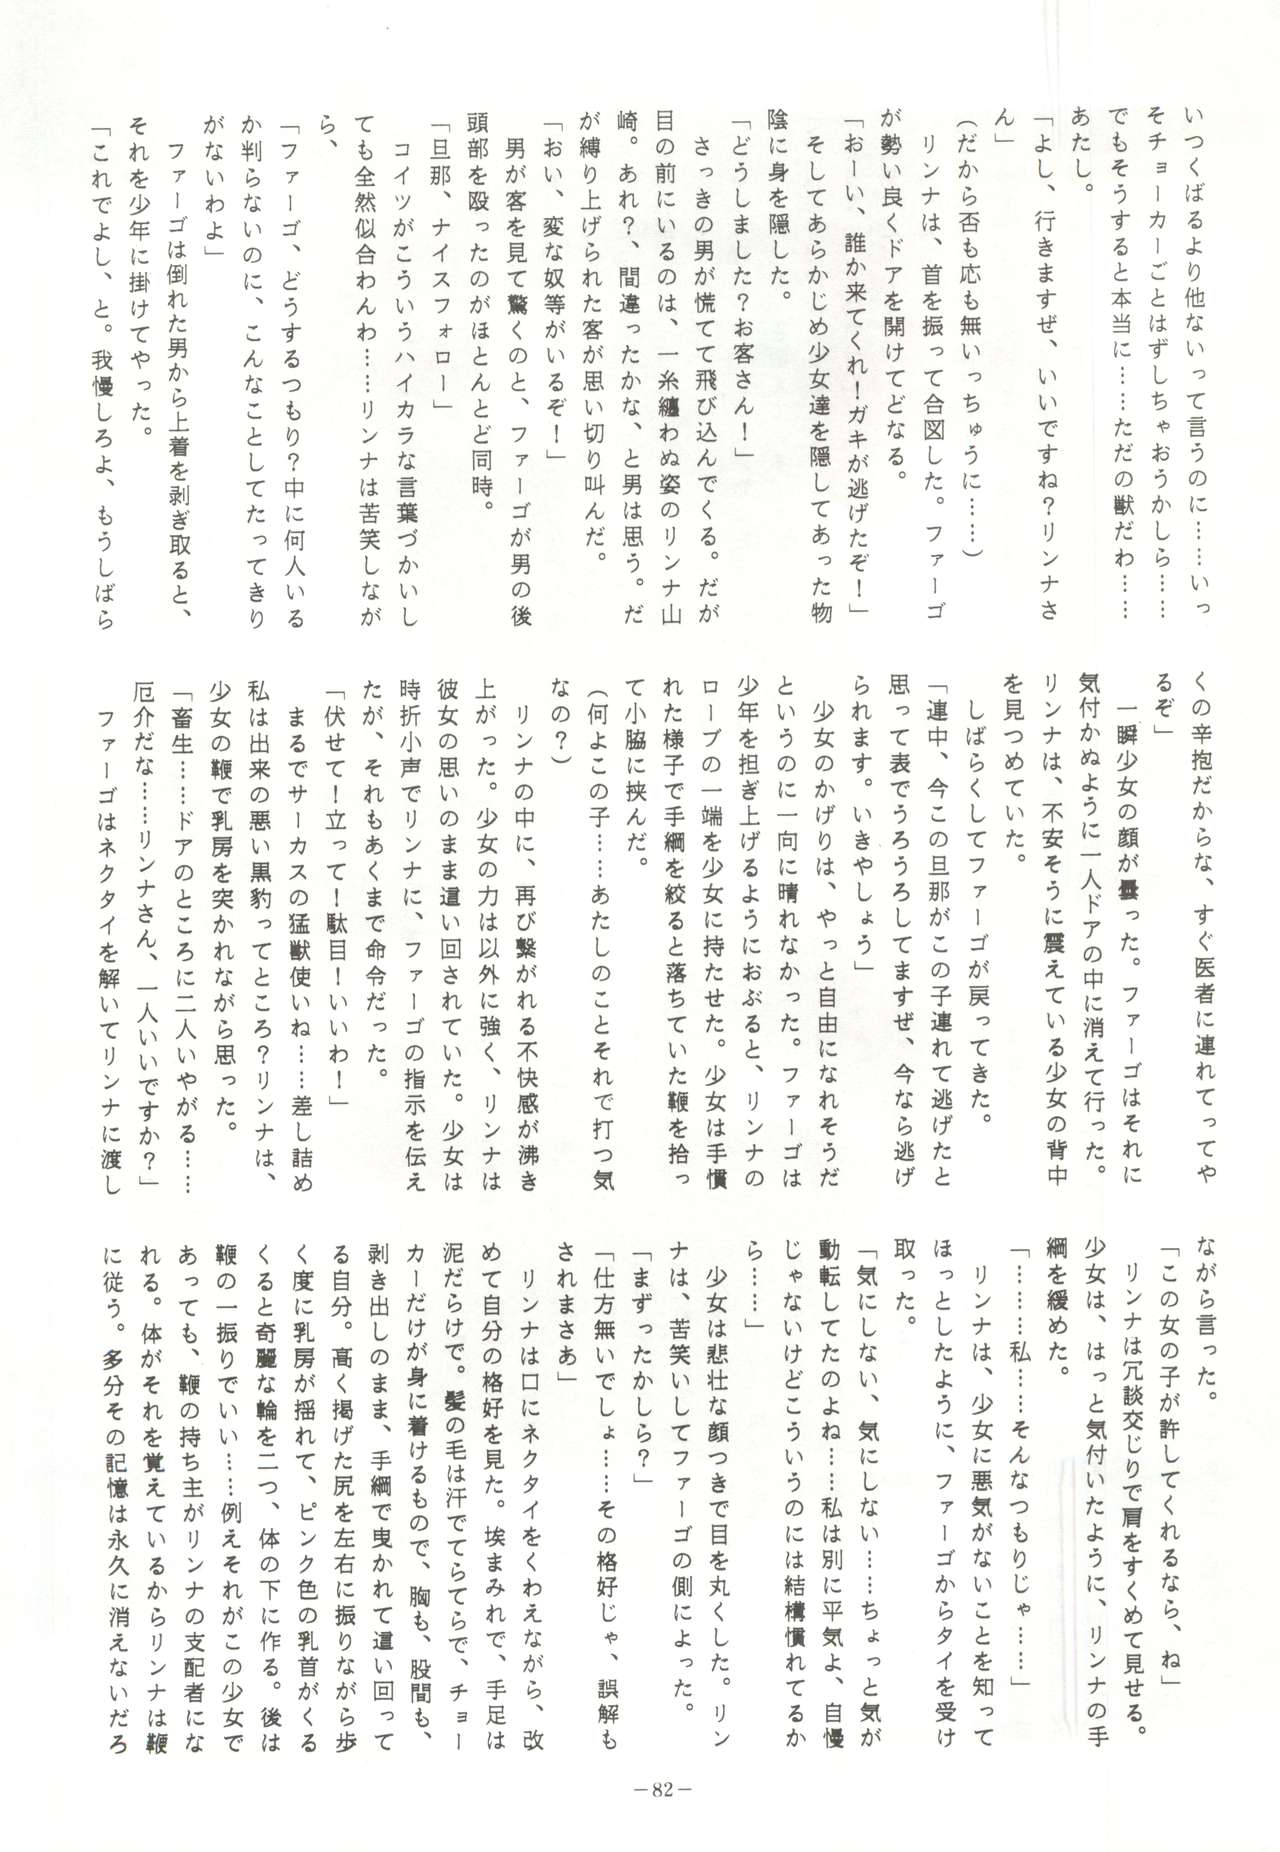 いつくばるより他ないって言うのに……いっ
そチョーカーごとはずしちゃおうかしら……
でもそうすると本当に……ただの獣だわ……
あたし。
「よし、行きますぜ、いいですね？リンナさ
ん」
（だから否も応も無いっちゅうに……）
リンナは、首を振って合図した。ファーゴ
が勢い良くドアを開けてどなる。
「おーい、誰か来てくれ！ガキが逃げたぞ！」
そしてあらかじめ少女達を隠してあった物
陰に身を隠した。
「どうしました？お客さん！」
さっきの男が慌てて飛び込んでくる。だが
目の前にいるのは、一糸纏わぬ姿のリンナ山
崎。あれ？、間違ったかな、と男は思う。だ
が縛り上げられた客が思い切り叫んだ。
「おい、変な奴等がいるぞ！」
男が客を見て驚くのと、ファーゴが男の後
頭部を殴ったのがほとんど同時。
「旦那、ナイスフォロー」
コイツがこういうハイカラな言葉づかいし
ても全然似合わんわ……リンナは苦笑しなが
ら、
「ファーゴ、どうするつもり？中に何人いる
か判らないのに、こんなことしてたってきり
がないわよ」
ファーゴは倒れた男から上着を剥ぎ取ると、
それを少年に掛けてやった。
「これでよし、と。我慢しろよ、もうしばら
くの辛抱だからな、すぐ医者に連れてってや
るぞ」
一瞬少女の顔が曇った。ファーゴはそれに
気付かぬように一人ドアの中に消えて行った。
リンナは、不安そうに震えている少女の背中
を見つめていた。
しばらくしてファーゴが戻ってきた。
「連中、今この旦那がこの子連れて逃げたと
思って表でうろうろしてますぜ、今なら逃げ
られます。いきやしょう」
少女のかげりは、やっと自由になれそうだ
というのに一向に晴れなかった。ファーゴは
少年を担ぎ上げるようにおぶると、リンナの
ロープの一端を少女に持たせた。少女は手慣
れた様子で手綱を絞ると落ちていた鞭を拾っ
て小脇に挟んだ。
（何よこの子……あたしのことそれで打つ気
なの？）
リンナの中に、再び繋がれる不快感が沸き
上がった。少女の力は以外に強く、リンナは
彼女の思いのまま這い回されていた。少女は
時折小声でリンナに、ファーゴの指示を伝え
たが、それもあくまで命令だった。
「伏せて！立って！駄目！いいわ！」
まるでサーカスの猛獣使いね……差し詰め
私は出来の悪い黒豹ってところ？リンナは、
少女の鞭で乳房を突かれながら思った。
「畜生……ドアのところに二人いやがる……
厄介だな……リンナさん、一人いいですか？」
ファーゴはネクタイを解いてリンナに渡し
ながら言った。
「この女の子が許してくれるなら、ね」
リンナは冗談交じりで肩をすくめて見せる。
少女は、はっと気付いたように、リンナの手
綱を緩めた。
「………私……そんなつもりじゃ……」
リンナは、少女に悪気がないことを知って
ほっとしたように、ファーゴからタイを受け
取った。
「気にしない、気にしない……ちょっと気が
動転してたのよね……私は別に平気よ、自慢
じゃないけどこういうのには結構慣れてるか
ら……」
少女は悲壮な顔つきで目を丸くした。リン
ナは、苦笑いしてファーゴの側によった。
「まずったかしら？」
「仕方無いでしょ……その格好じゃ、誤解も
されまさあ」
リンナは口にネクタイをくわえながら、改
めて自分の格好を見た。埃まみれで、手足は
泥だらけで。髪の毛は汗でてらてらで、チョー
カーだけが身に着けるもので、胸も、股間も、
剥き出しのまま、手綱で曳かれて這い回って
る自分。高く掲げた尻を左右に振りながら歩
く度に乳房が揺れて、ピンク色の乳首がくる
くると奇麗な輪を二つ、体の下に作る。後は
鞭の一振りでいい……例えそれがこの少女で
あっても、鞭の持ち主がリンナの支配者にな
れる。体がそれを覚えているからリンナは鞭
に従う。多分その記憶は永久に消えないだろ
－82－